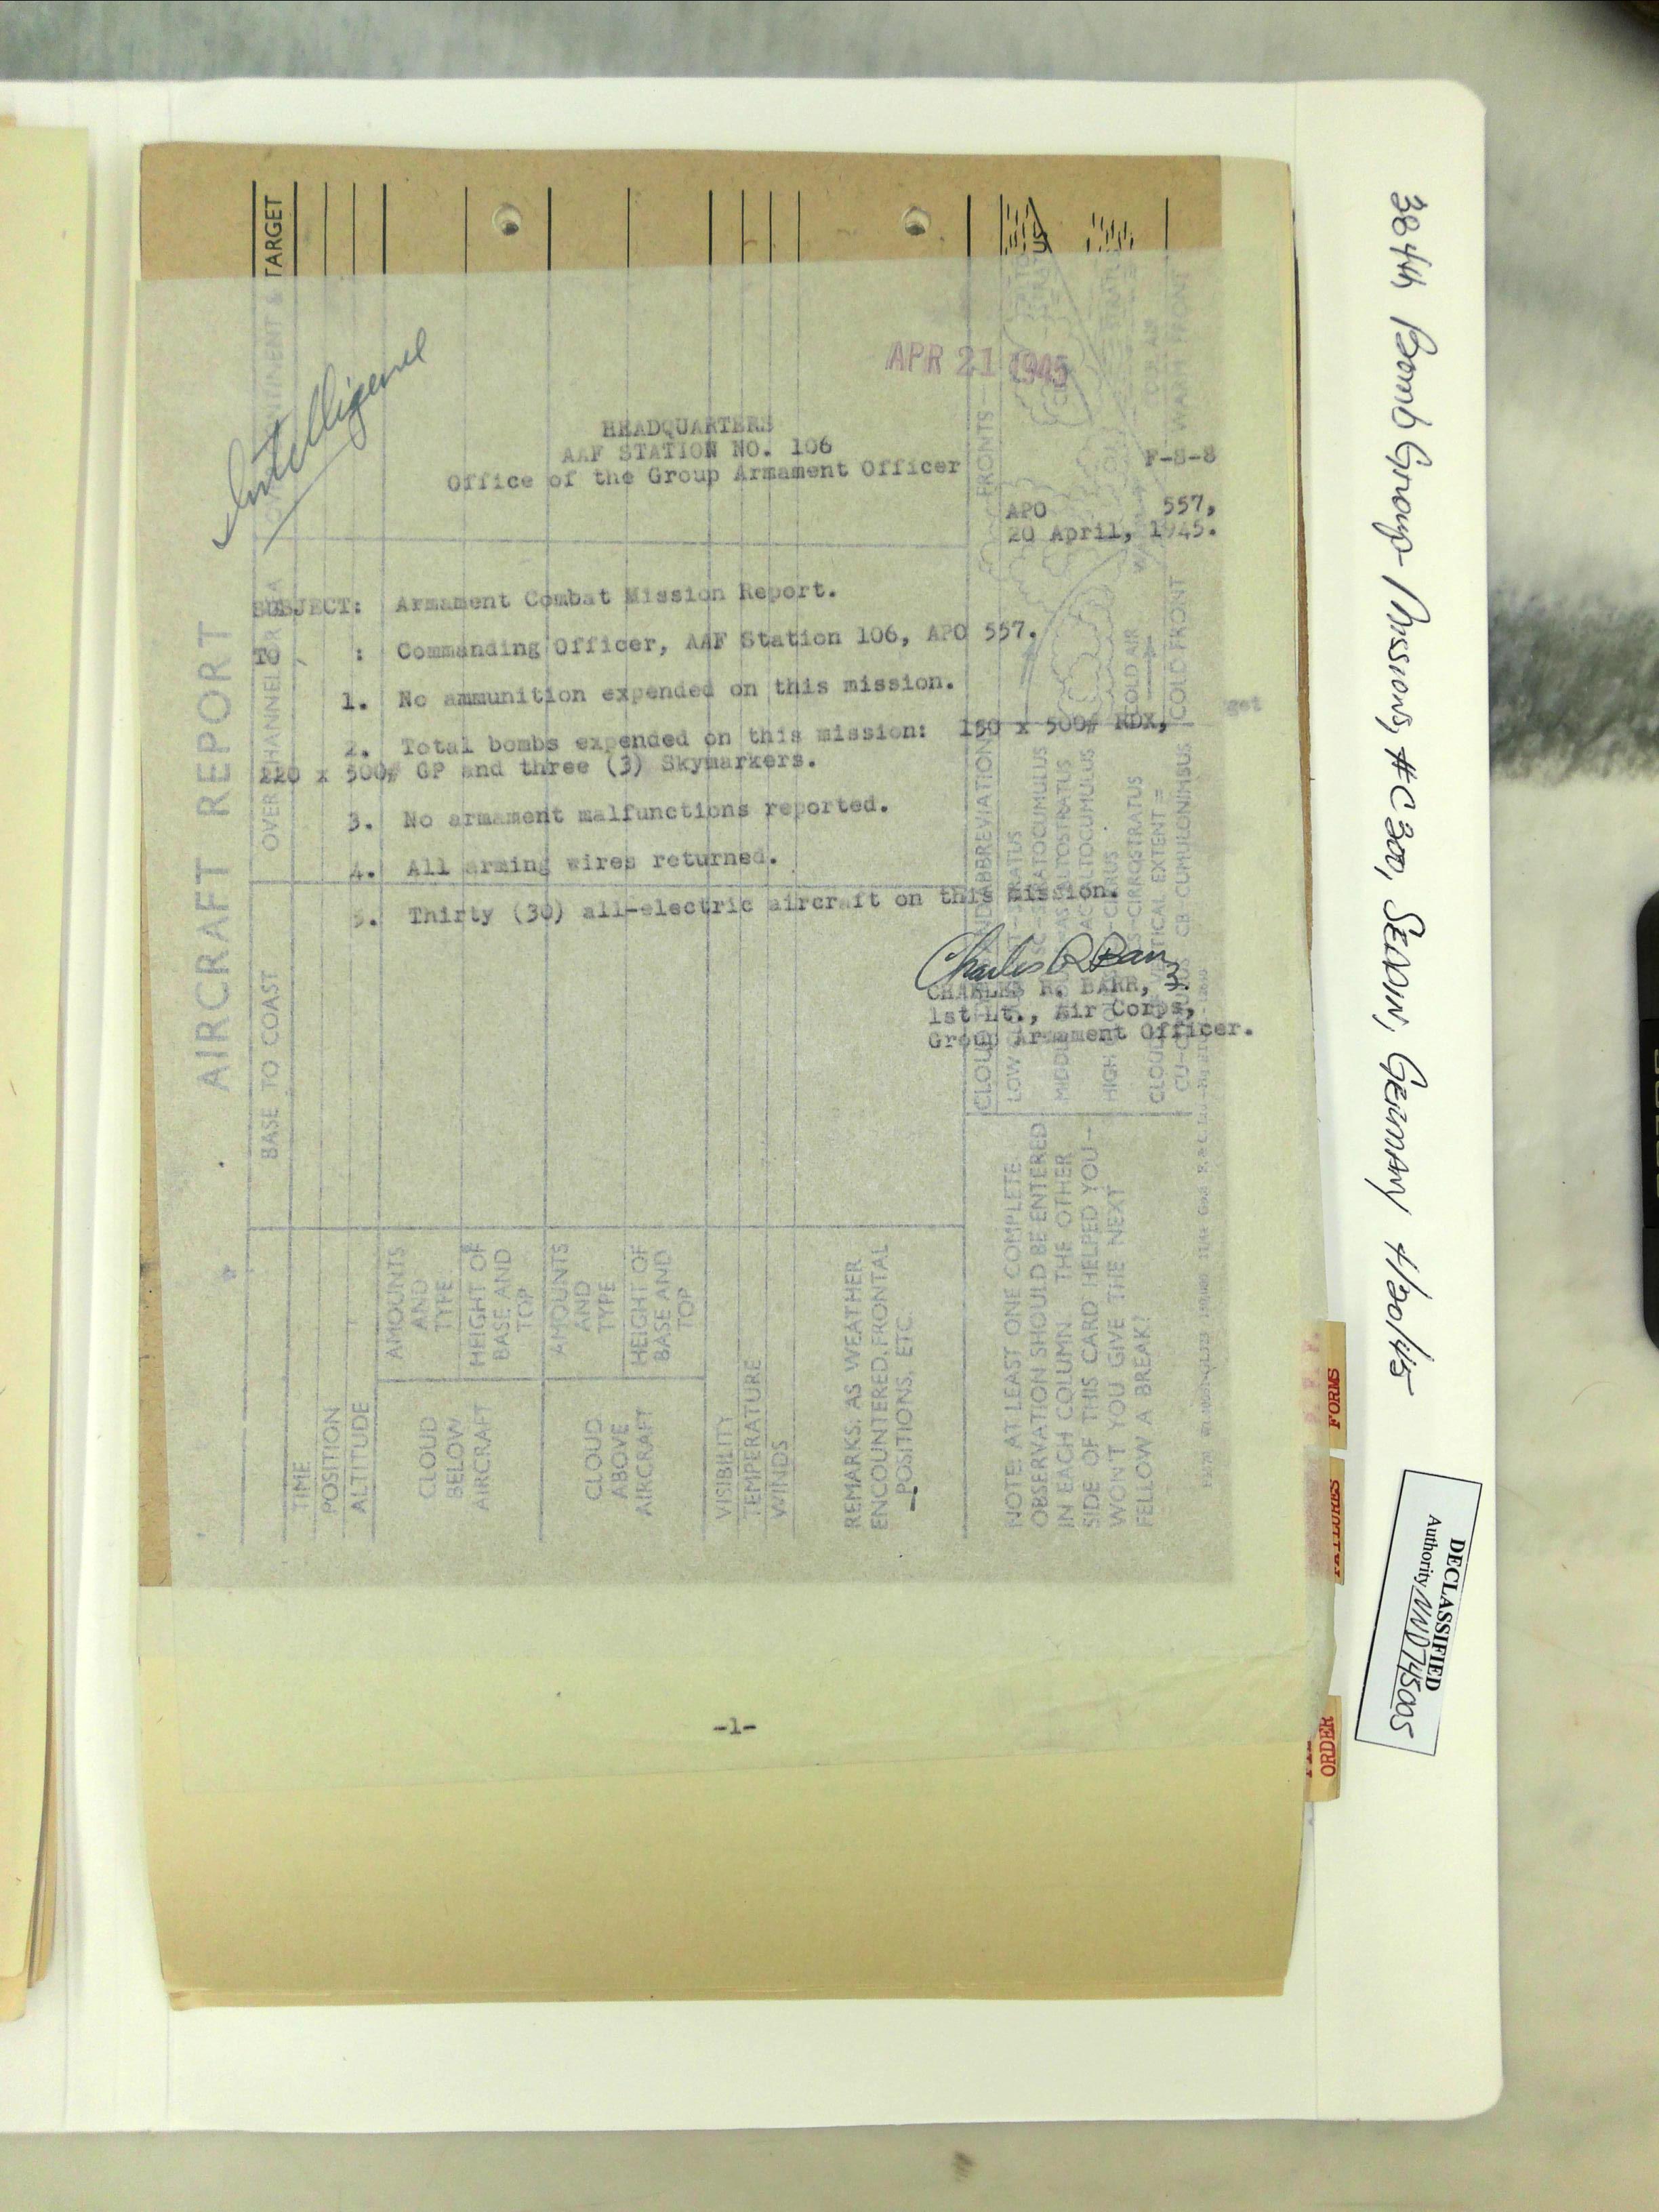 APR 21 1945
Intelligence
HEADQUARTERS
AAF STATION NO. 106
Office of the Group Armament Officer
F-S-8
APO 557,
20 April, 1945.
SUBJECT: Armament Combat Mission Report.
TO : Commanding Officer, AAF Station 106, APO 557.
1. No ammunition expended on this mission.
2. Total bombs expended on this mission: 150 x 500# RDX,
220 x 500# GP and three (3) Skymarkers.
3. No armament malfunctions reported.
4. All arming wires returned.
5. Thirty (30) all-electric aircraft on this mission.
Charles R Barr
CHARLES R. BARR,
1st Lt., Air Corps,
Group Armament Officer.
-1-
AIRCRAFT REPORT
BASE TO COAST
OVER CHANNEL OR SEA
& TARGET
TIME
POSITION
ALTITUDE
CLOUD
BELOW
AIRCRAFT
AMOUNTS
AND
TYPE
HEIGHT OF
BASE AND
TOP
CLOUD
ABOVE
AIRCRAFT
AMOUNTS
AND
TYPE
HEIGHT OF
BASE AND
TOP
VISIBILITY
TEMPERATURE
WINDS
REMARKS: AS WEATHER
ENCOUNTERED, FRONTAL
POSITIONS, ETC.
NOTE: AT LEAST ONE COMPLETE
OBSERVATION SHOULD BE ENTERED
IN EACH COLUMN. THE OTHER
SIDE OF THIS CARD HELPED YOU—
WON'T YOU GIVE THE NEXT
FELLOW A BREAK?
FRONTS
COLD AIR
COLD FRONT
WARM FRONT
get
FORMS
FAILURES
ORDER
384th Bomb Group - Missions, #C300, SEDDIN, GERMANY 4/20/45
DECLASSIFIED
Authority NND745005